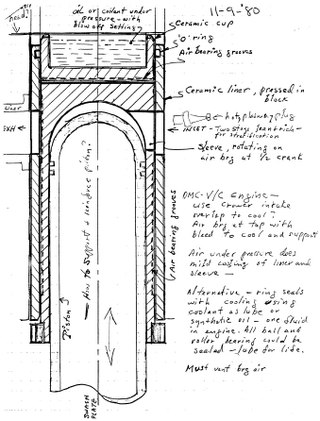 11-9-'80
head
oil or coolant under
pressure - with
blow off setting?
Ceramic cup
'o' ring
Air bearing grooves
Ceramic liner, pressed in
block
hot plasma plug
INLET - Two stage
for stratification
EXH
Sleeve, rotating on
air brg at ½ crank
OMC-V/C Engine -
use Crower intake
overlap to cool?
Air brg at top with
bleed to cool and support
Air under pressure does
mild cooling of liner and
sleeve -
Alternative - ring seals
with cooling using
coolant as lube or
synthetic oil - one fluid
in engine. All ball and
roller bearing could be
sealed - lube for life.
Must vent brg air
Air bearing grooves
How to support & reinforce piston?
Piston
SWASH
PLATE